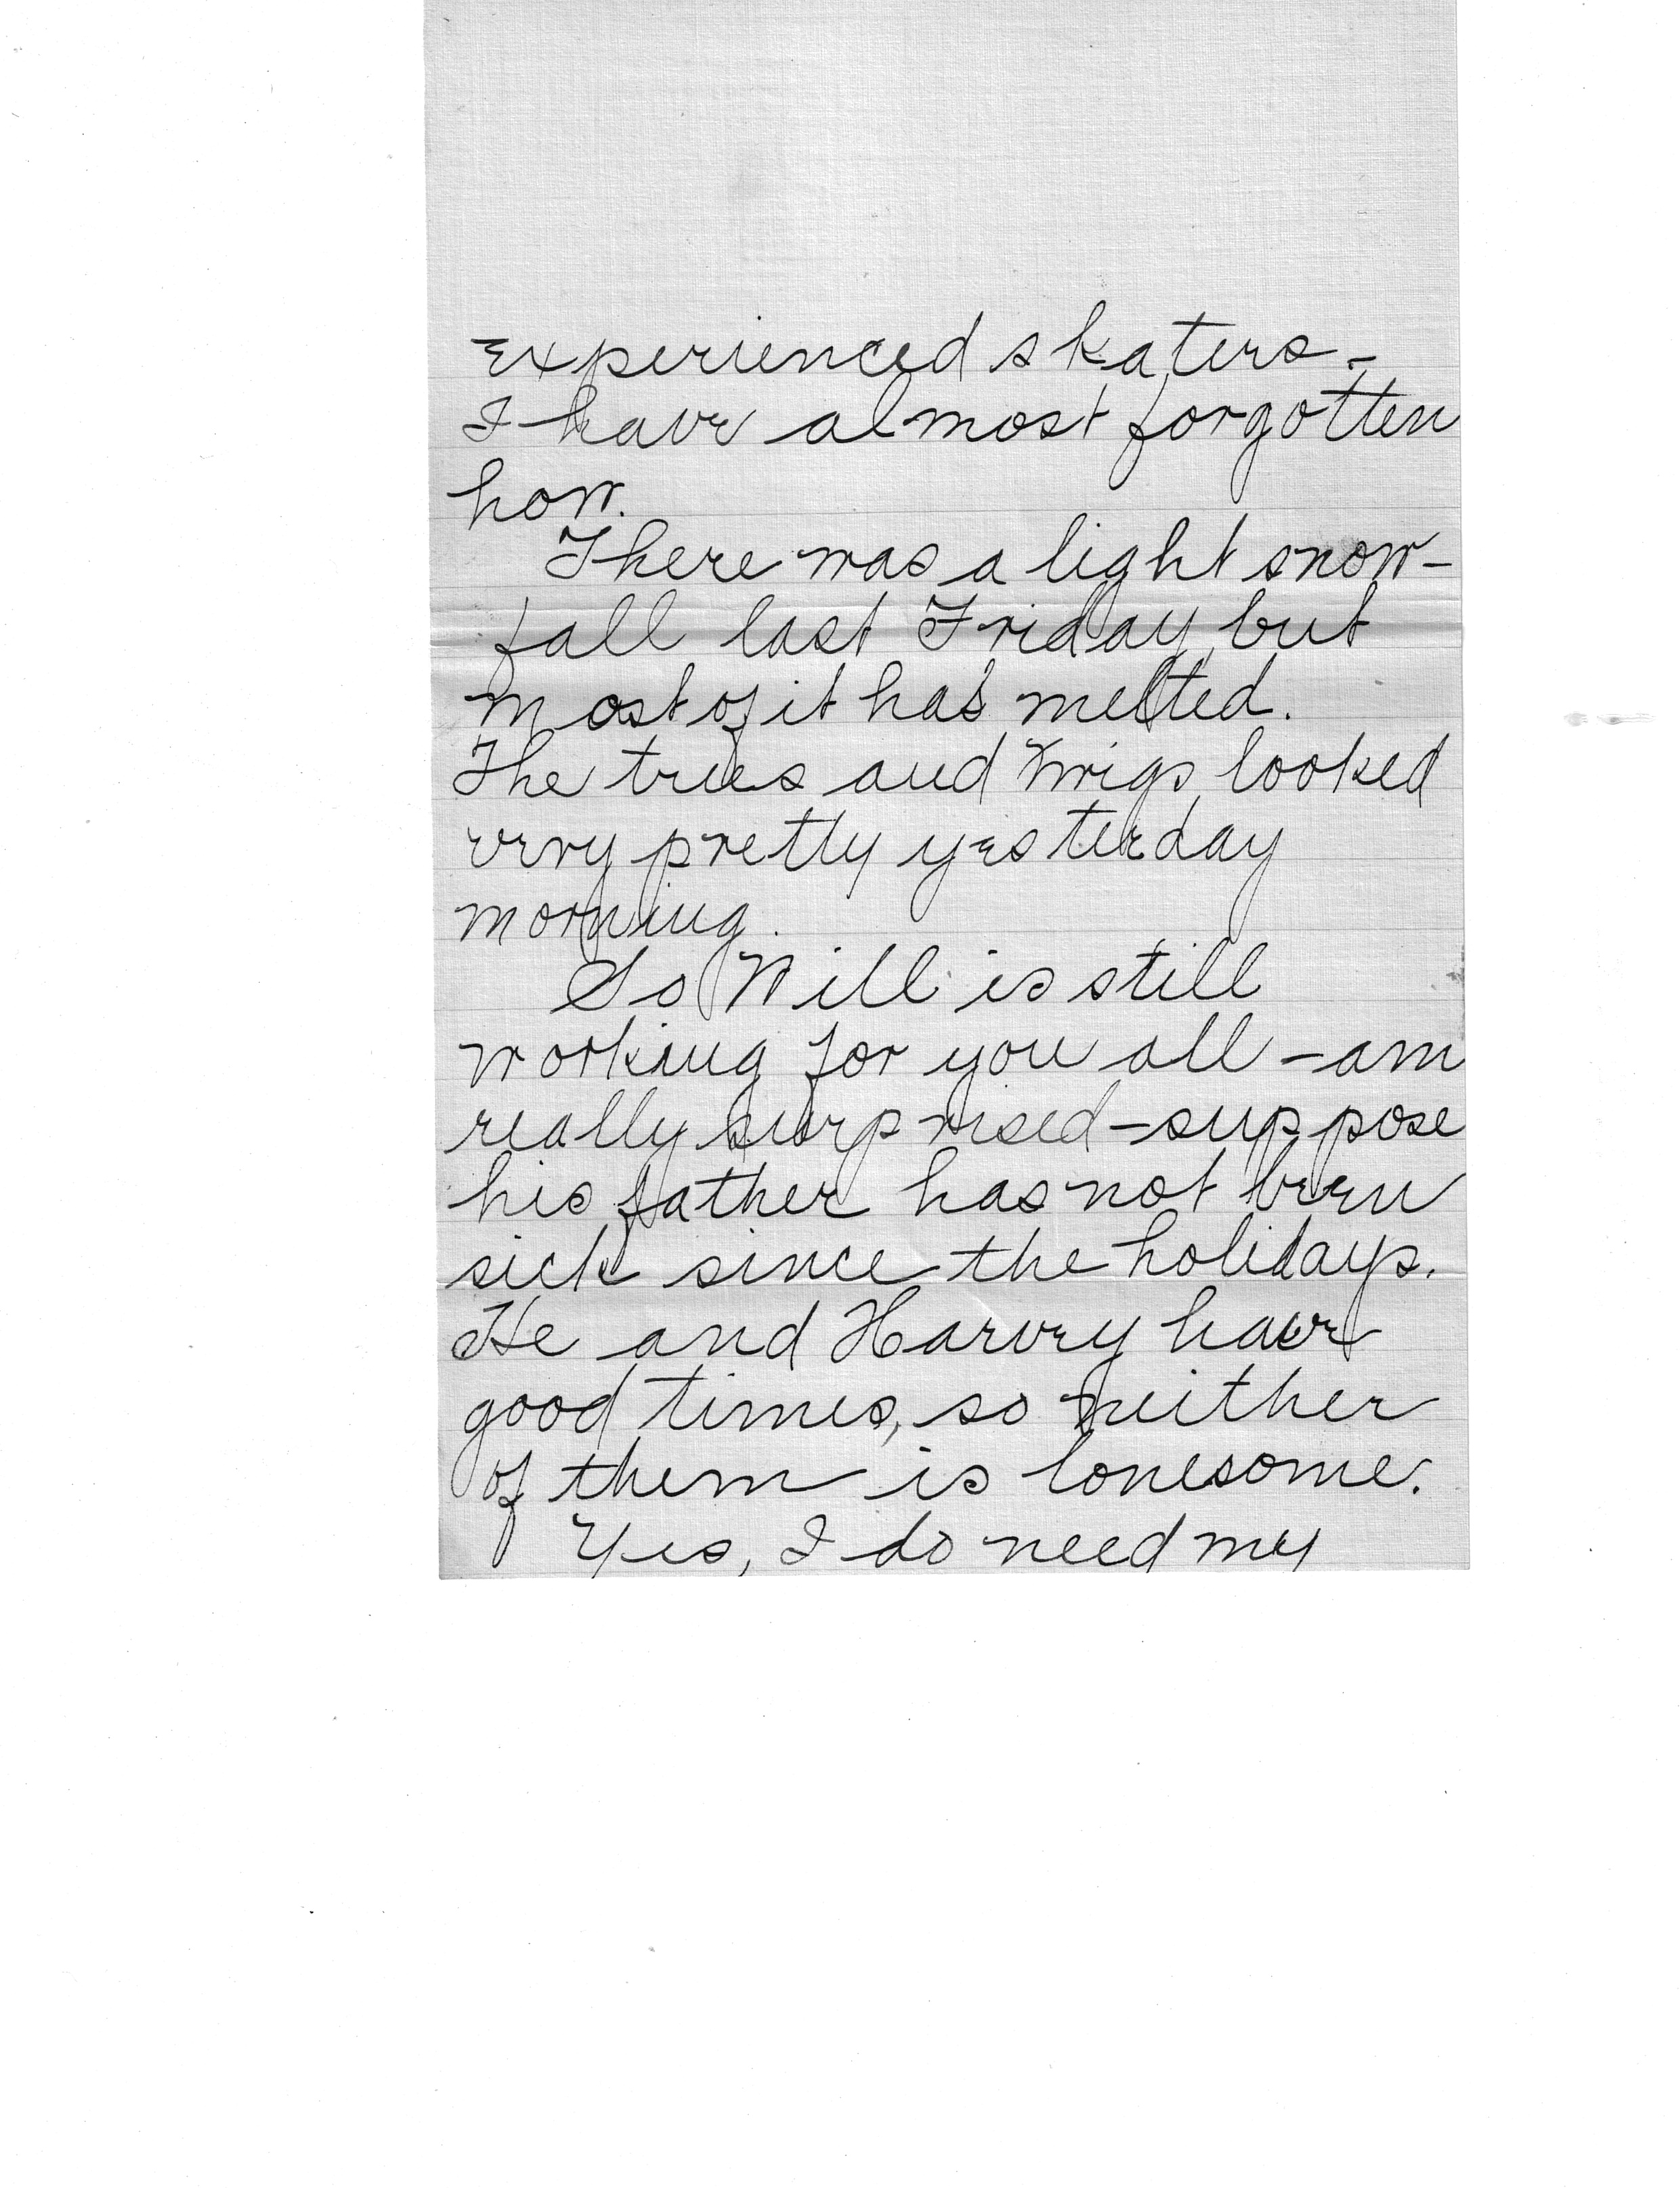 experienced skaters -
I have almost forgotten
how.
There was a light snow-
fall last Friday, but
most of it has melted.
The trees and twigs looked
very pretty yesterday
morning.
So Will is still
working for you all - am
really surprised - suppose
his father has not been
sick since the holidays.
He and Harvey have
good times, so neither
of them is lonesome.
Yes, I do need my